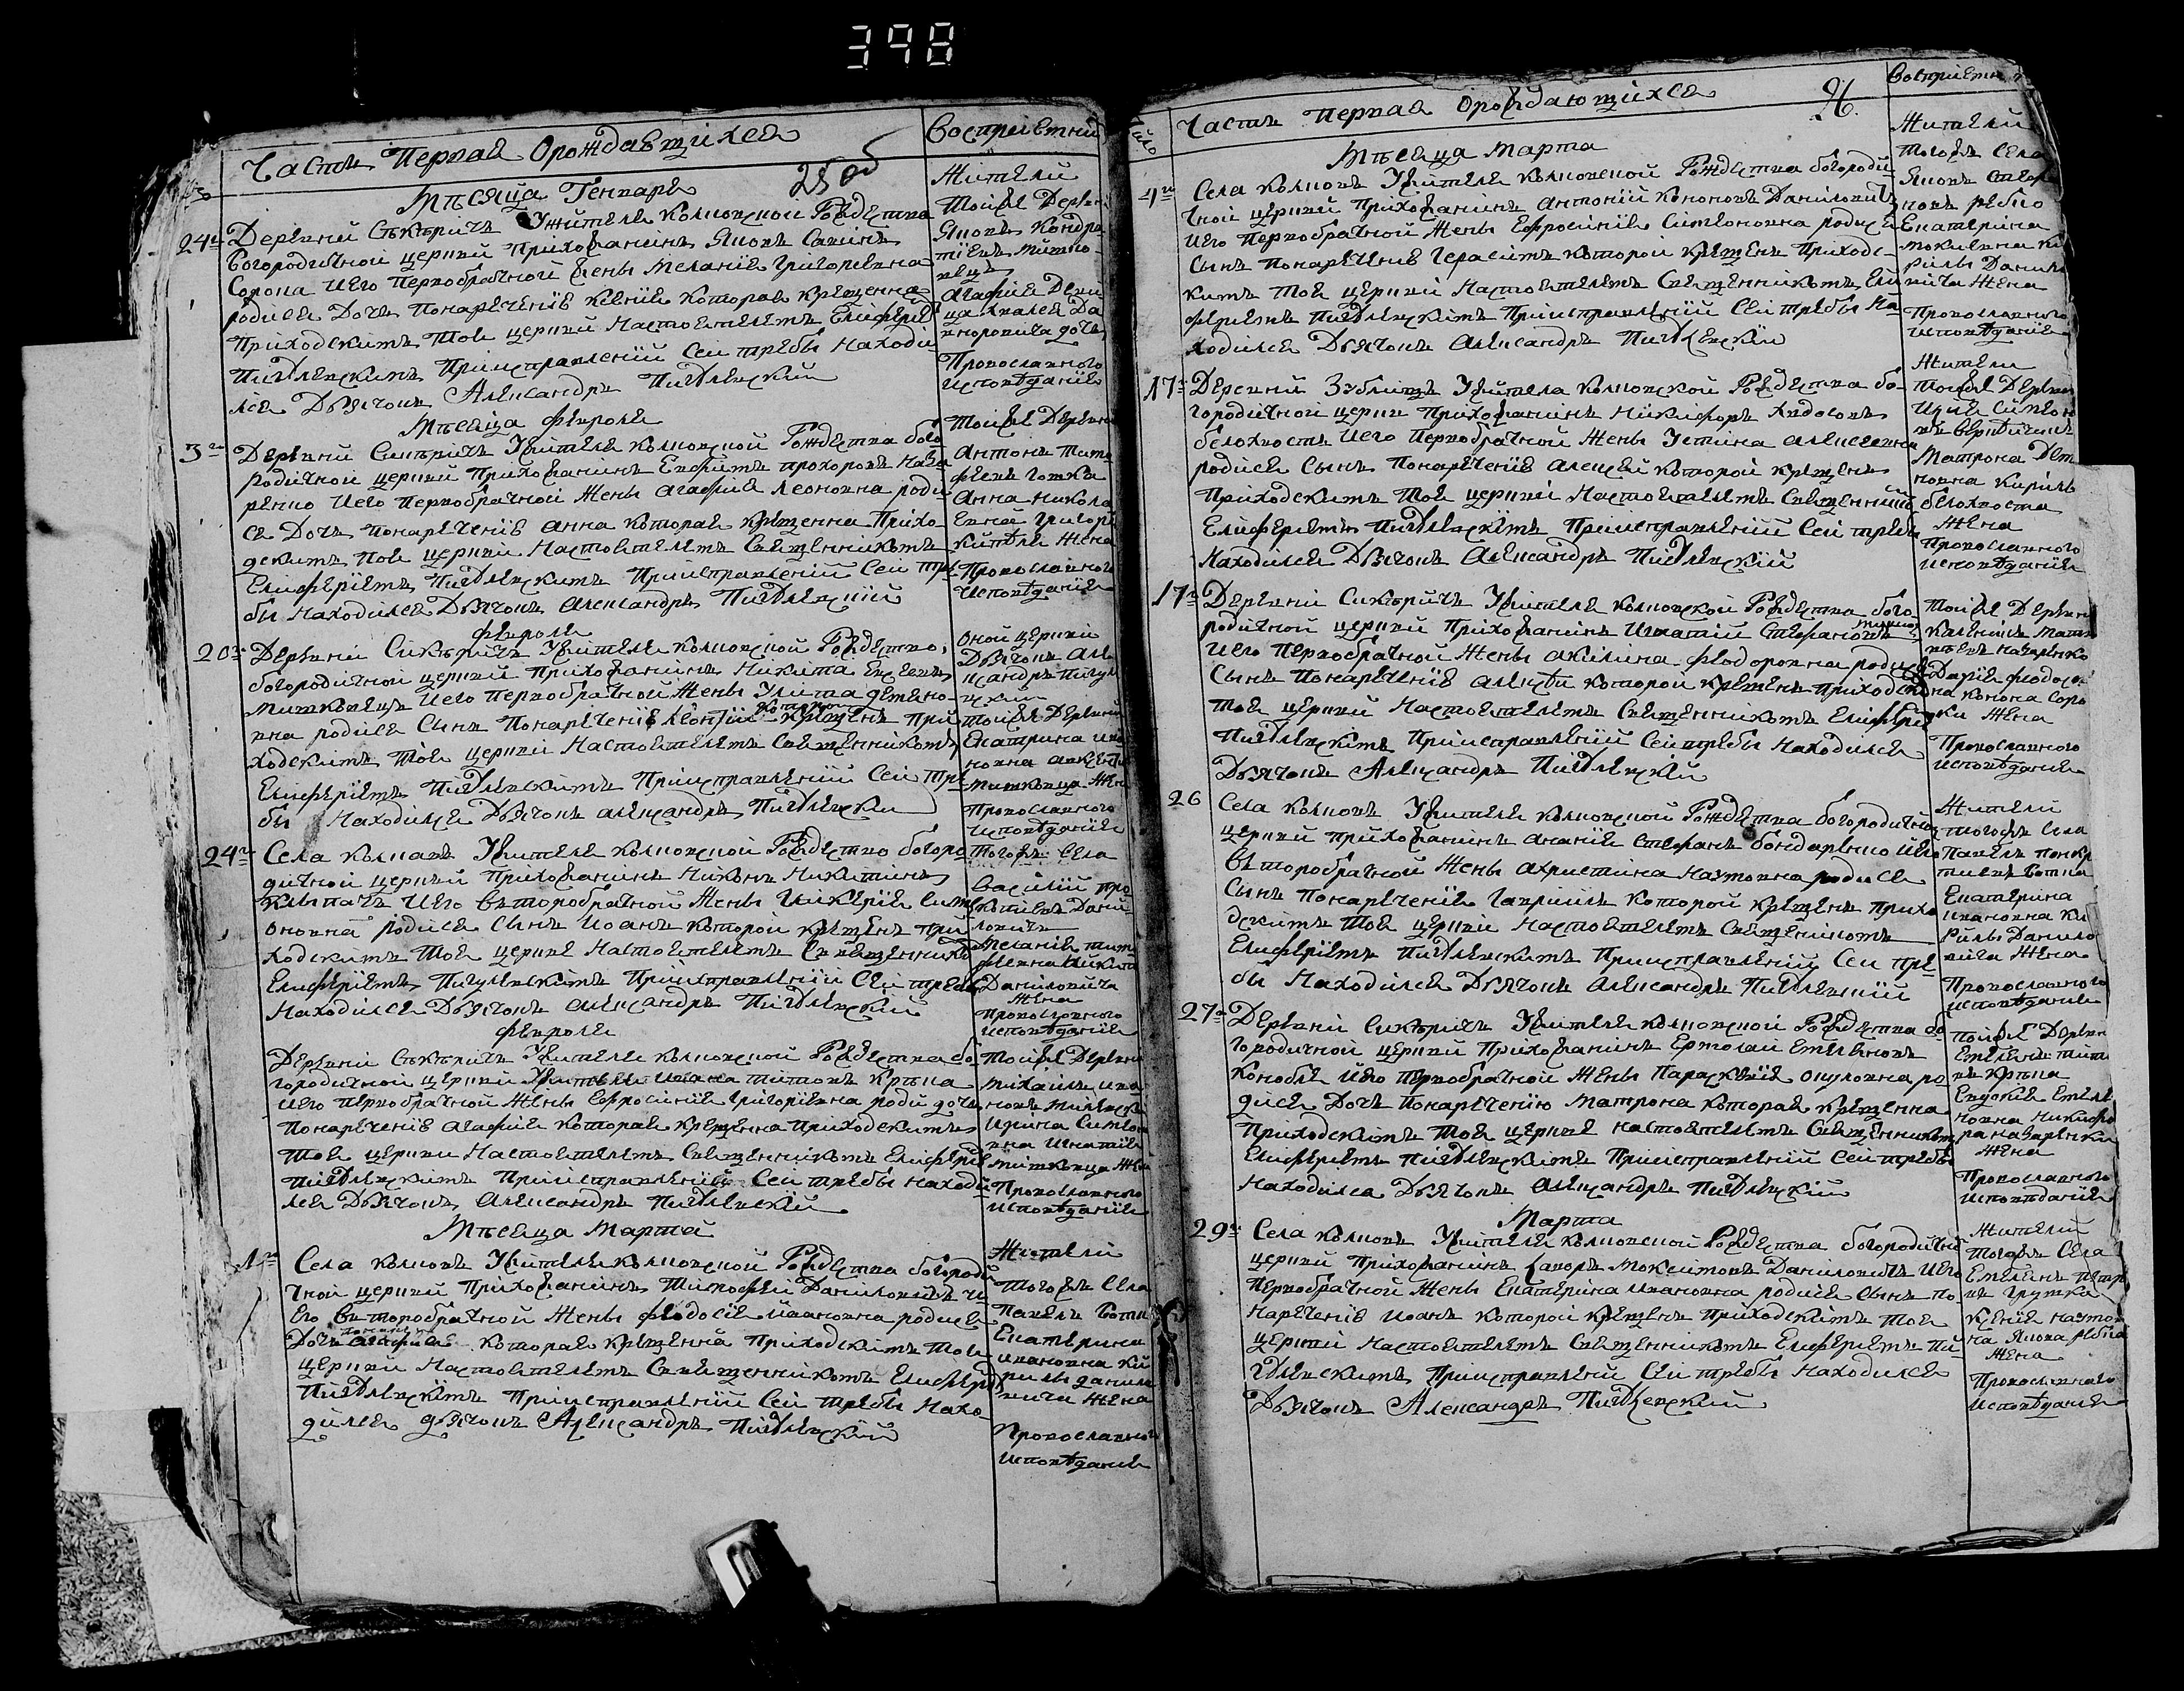 398
Часть Первая Ораждавшихся
25 об
Восприемни
Мѣсяца Генваря
24го Деревни Сикѣричъ Жителя Колновской Рождества
Богородичной церкви Прихожанинъ Яковъ Савинъ
Сорока иего первобрачной жены Меланіѣ Григорієвна
родися Дочь Понареченіѣ Ксеніѣ которая крещенна
Приходскимъ тоя церкви Настоятелемъ Елифері
Пигулевскимъ Приисправленіи сеи требы Находи
лся Дьячокъ Александръ Пигулевский
Жители
тойже Деревн
Яковъ Кондра
тіевъ Митко
вецъ
Агафия
Православного
исповѣданія
Мѣсяца Февраля
3го Деревни Сикѣричъ Жителя Колновской Рождества бого
родичной церкви Прихожанинъ Евфимъ Прохоровъ Наза
ренко иего первобрачной жены Агафия Леоновна роди
ся Дочь Понареченіѣ Анна которая крещенна Прихо
дскимъ тоя церкви Настоятелемъ Священникомъ
Елиферіемъ Пигулевскимъ Приисправленіи сеи тре
бы Находился Дьячокъ Александръ Пигулевский
тойже Деревни
Антонъ Тимо
феевъ
Анна Никола
евна Григори
жена
Православного
исповѣданія
Февраля
20го Деревни Сикѣричъ Жителя Колновской Рождество
богородичной церкви Прихожанинъ Никита Евсеевъ
Митковецъ иего первобрачной жены Улита Демено
вна родися Сынъ Понареченіѣ Леонтій которои крещенъ При
ходскимъ тоя церкви Настоятелемъ Священникомъ
Елиферіемъ Пигулевскимъ Приисправленіи сеи тре
бы Находился Дьячокъ Александръ Пигулевски
оной церкви
Дьячокъ Але
ксандръ Пигул
евский
тойже Деревни
Екатрина ива
новна
Митковца жен
Православного
исповѣданія
24го Села Колновъ Жителя Колновской Рождество богоро
дичной церкви Прихожанинъ Никонъ Никитинъ
иего второбрачной жены Гликеріѣ Симе
оновна родися Сынъ Иоанъ которой крещенъ при
ходскимъ тоя церкви Настоятелемъ Священнико
Елиферіемъ Пигулевскимъ Приисправленіи Сеи требы
Находился Дьячокъ Александръ Пигулевский
тогоже Села
Василій Про
копиевъ Дани
ловичъ
Меланія Тимо
феевна Никити
Даниловича
жена
Православного
исповѣданія
Февраля
Деревни Сикѣричъ Жителя Колновской Рождества бо
городичной церкви Жителя Ивана Титовъ Крѣпа
иего первобрачной жены Ефросиніѣ Григоріевна роди дочь
Понареченіѣ Агафия которая крещенна Приходскимъ
тоя церкви Настоятелемъ Священникомъ Елиферіе
Пигулевскимъ Приисправленіи Сеи требы находи
лся Дьячокъ Александръ Пигулевский
тойже Деревни
Михаилъ ива
новъ
Ирина Симео
вна Игнатія
Митковца жен
Православного
исповѣданія
Мѣсяца Марта
1го Села Колновъ Жителя Колновской Рождества богороди
чной церкви Прихожанинъ Тимофей Даниловичъ и
его второбрачной жены Феодосіѣ Ивановна родися
Дочь понареч Агафия которая крещенна Приходскимъ тоя
церкви Настоятелемъ Священникомъ Елифері
Пигулевскимъ Приисправленіи Сеи требы Нахо
дился дьячокъ Александръ Пигулевский
Жители
тогоже Села
Павелъ
Екатерина
ивановна Ки
рилы Данил
вича жена
Православного
исповѣданія
Часть Первая Ораждающихся
26.
Восприемни
Число
Мѣсяца Марта
4го Села Колновъ Жителя Колновской Рождества богороди
чной церкви Прихожанинъ Антоній Кононовъ Даниловичъ
иего первобрачной жены Ефросиніѣ Симеоновна родися
Сынъ Понареченіѣ Герасимъ которои крещенъ Приходс
кимъ тоя церкви Настоятелемъ Священникомъ Ели
феріемъ Пигулевскимъ Приисправленіи Сеи требы На
ходился Дьячокъ Александръ Пигулевский
Жители
тогоже Села
Яковъ
Екатерина
Ки
рилы Данило
вича жена
Православного
исповѣданія
17го Деревни Зубилицъ Жителя Колновской Рождества бо
городичной церкви Прихожанинъ Никифоръ
белохвостъ иего первобрачной жены Устина Алексеевна
родися Сынъ Понареченіѣ Алексей которой крещенъ
Приходскимъ тоя церкви Настоятелемъ Священнико
Елиферіемъ Пигулевскимъ Приисправленіи Сеи требы
Находился Дьячокъ Александръ Пигулевский
Жители
тойже Деревни
Илия Симеон
Матрона Дем
новна Кирилы
белохвоста
жена
Православного
исповѣданія
17го Деревни Сикѣричъ Жителя Колновской Рождества бого
родичной церкви Прихожанинъ Игнатій Стефановъ Митков
иего первобрачной жены Акилина Феодоровна родися
Сынъ Понареченіѣ Алексѣй которой крещенъ Приходски
тоя церкви Настоятелемъ Священникомъ Елифері
Пигулевскимъ Приисправленіи Сеи требы Находился
Дьячокъ Александръ Пигулевский
тойже Деревни
Каленикъ Матв
ѣевъ Назаренко
Дарія Феодосі
вна Конона Соро
ки жена
Православного
исповѣданія
26 Села Колновъ Жителя Колновской Рождества богородично
церкви Прихожанинъ Ананіе Стефанъ бондаренко иего
второбрачной жены Ахристина Наумовна родися
Сынъ Понареченіѣ Гавріилъ Которой крещенъ Прихо
дскимъ тоя церкви Настоятелемъ Священикомъ
Елиферіемъ Пигулевскимъ Приисправленіи Сеи тре
бы Находился Дьячокъ Александръ Пигулевский
Жители
тогоже Села
Павелъ
Екатерина
ивановна Ки
рилы Данило
вича жена
Православного
исповѣданія
27го Деревни Сикѣричъ Жителя Колновской Рождества бо
городичной церкви Прихожанинъ Ермолай Емелянов
Конобля иего первобрачной жены Параскевіѣ Окуловна ро
дися Дочь Понареченію Матрона которая крещенна
Приходскимъ тоя церкви настоятелемъ Священником
Елиферіемъ Пигулевскимъ Приисправленіи Сеи требы
находился Дьячокъ Александръ Пигулевский
тойже Деревн
Емелянъ Тито
въ Крѣпа
Евдокия Емеля
новна Никифо
ра назаренка
жена
Православного
исповѣданія
Марта
29го Села Колновъ Жителя Колновской Рождества богородично
церкви Прихожанинъ Лаворъ Моксимовъ Даниловичъ иего
первобрачной жены Екатерина ивановна родися Сынъ по
нареченіѣ Иоанъ которой крещенъ Приходскимъ тоя
церкви Настоятелемъ Священникомъ Елиферіемъ Пи
гулевскимъ Приисправлени Сеи требы Находился
Дьячокъ Александръ Пигулевский
Жители
тогоже Села
Емелянъ Петро
въ Грушка
Ксенія Наумов
на Якова
жена
Православного
исповѣданія